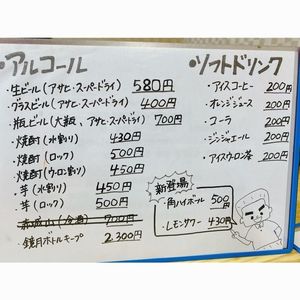 ・アルコール
・生ビール(アサヒ・スーパードライ) 580円
・グラスビール(アサヒ・スーパードライ) 400円
・瓶ビール(大瓶、アサヒ・スーパードライ) 700円
・焼酎(水割り) 430円
・焼酎(ロック) 500円
・焼酎(ウーロン割り) 450円
・芋(水割り) 450円
・芋(ロック) 500円
700円
・鏡月ボトルキープ 2,300円
新登場
・角ハイボール 500円
・レモンサワー 430円
・ソフトドリンク
・アイスコーヒー 200円
・オレンジジュース 200円
・コーラ 200円
・ジンジャエール 200円
・アイスウーロン茶 200円